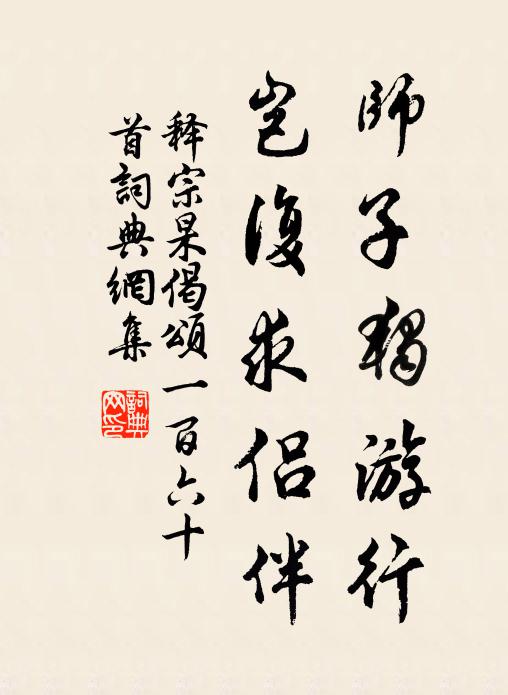 師子獨游行
豈復求侶伴
释宗杲偈頌一百六十
首詞典網集
詞典
网印